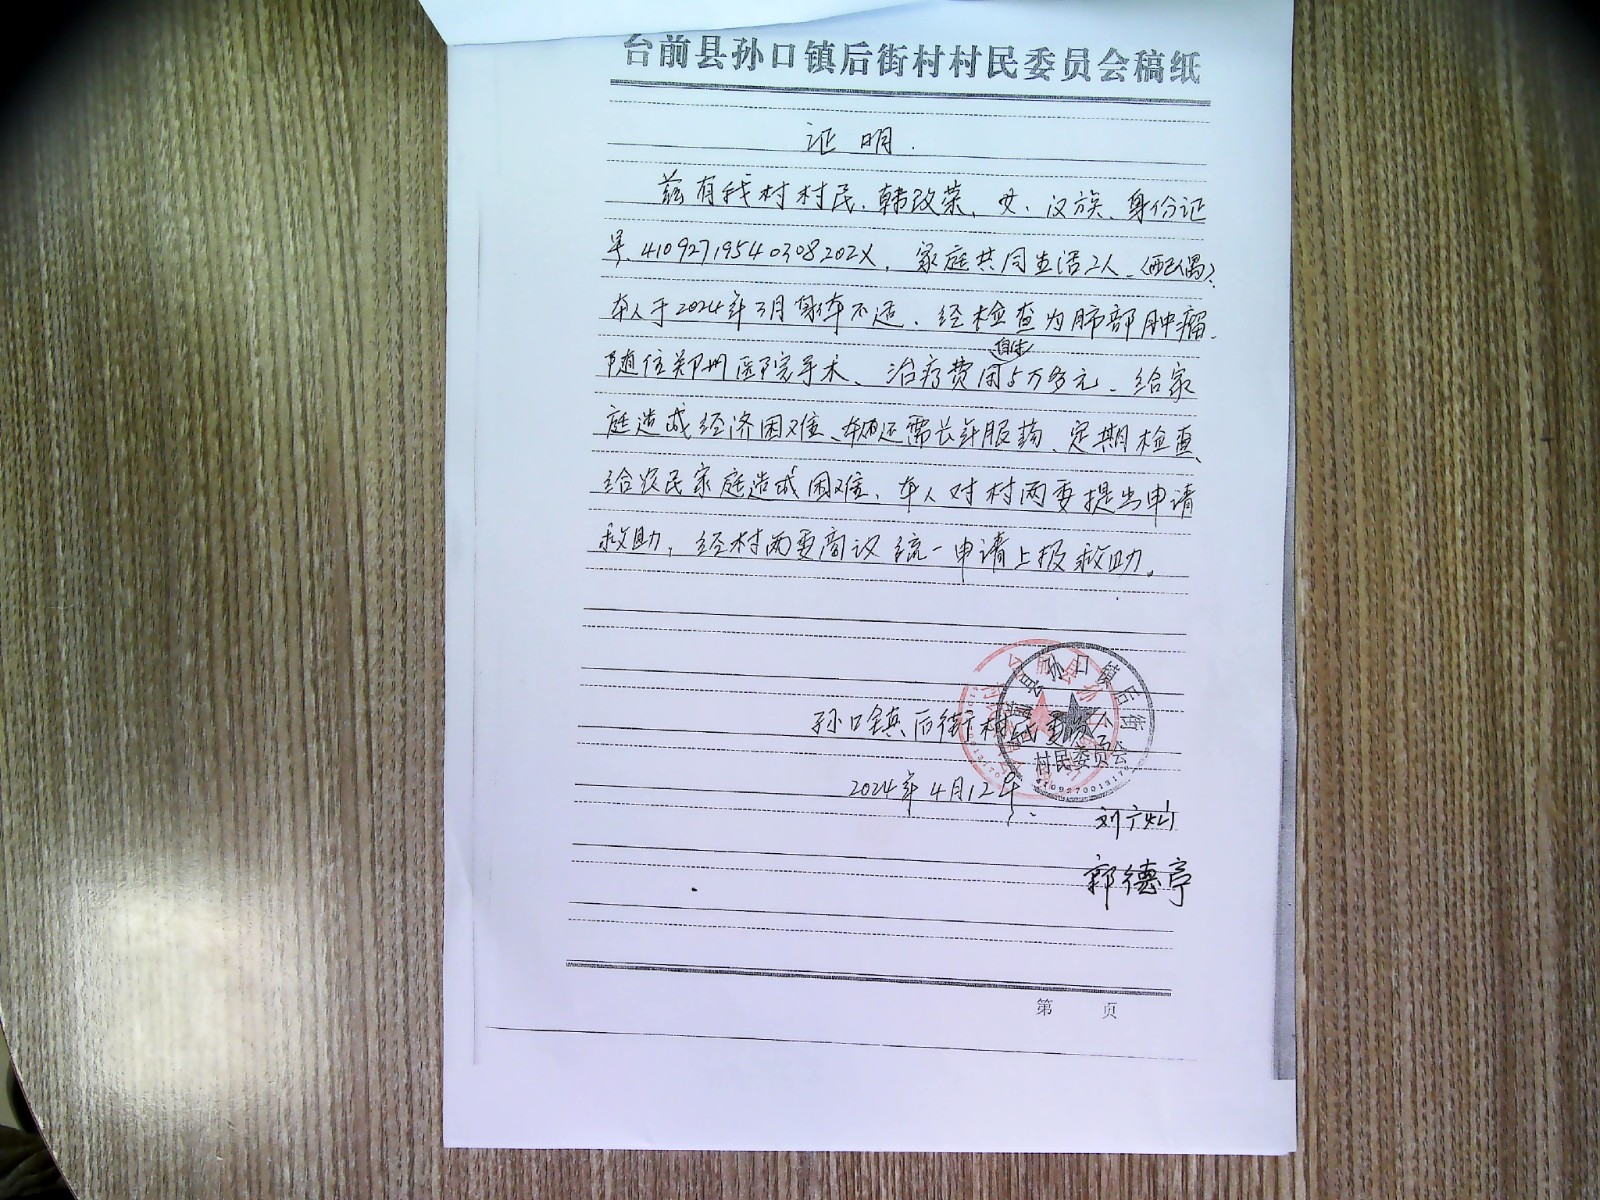 台前县孙口镇后街村村民委员会稿纸
证明.
兹有我村村民、韩改荣、女、汉族、身份证
号、41092719540308202X、家庭共同生活2人、(配偶)、
本人于2024年3月身体不适、经检查为肺部肿瘤、
自费
随住郑州医院手术、治疗费用5万多元、给家
庭造成经济困难、还需长年服药、定期检查、
给农民家庭造成困难、本人对村两委提出申请
救助，经村两委商议统一申请上报救助。
孙口镇后街村民委员会
台前县孙口镇后街
村民委员会
2024年4月12号
刘广灿
郭德亭
第 页